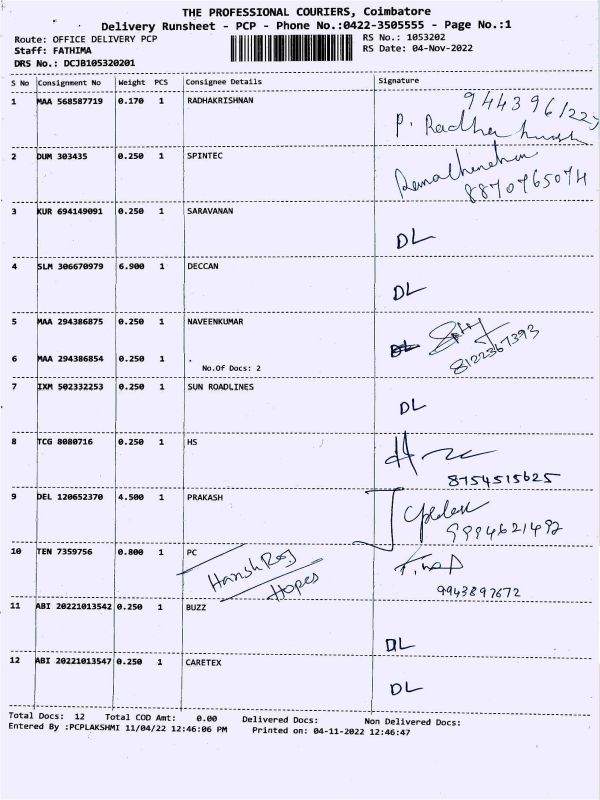 THE PROFESSIONAL COURIERS, Coimbatore
Delivery Runsheet - PCP - Phone No.:0422-3505555 - Page No.:1
Route: OFFICE DELIVERY PCP
RS No.: 1053202
Staff: FATHIMA
RS Date: 04-Nov-2022
DRS No.: DCJB105320201
S No Consignment No Weight PCS Consignee Details Signature
1 MAA 568587719 0.170 1 RADHAKRISHNAN
P. Radha
2 DUM 303435 0.250 1 SPINTEC
8870765074
3 KUR 694149091 0.250 1 SARAVANAN
DL
4 SLM 306670979 6.900 1 DECCAN
DL
5 MAA 294386875 0.250 1 NAVEENKUMAR
8122367393
6 MAA 294386854 0.250 1 .
No.Of Docs: 2
7 IXM 502332253 0.250 1 SUN ROADLINES
DL
8 TCG 8080716 0.250 1 HS
8754515625
9 DEL 120652370 4.500 1 PRAKASH
9994621492
10 TEN 7359756 0.800 1 PC
Harish Raj
Hopes
9943897672
11 ABI 20221013542 0.250 1 BUZZ
DL
12 ABI 20221013547 0.250 1 CARETEX
DL
Total Docs: 12 Total COD Amt: 0.00 Delivered Docs: Non Delivered Docs:
Entered By :PCPLAKSHMI 11/04/22 12:46:06 PM Printed on: 04-11-2022 12:46:47